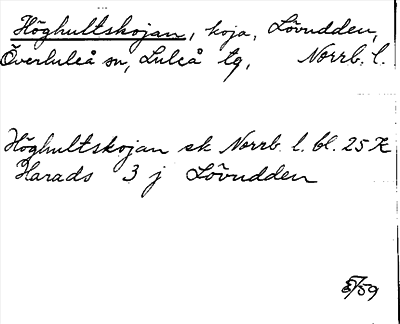 Höghultskojan, koja, Lövudden,
Överluleå sn, Luleå tg, Norrb. l.
Höghultskojan sk Norrb. l. bl. 25 K
Harads 3 j Lövudden
5/59